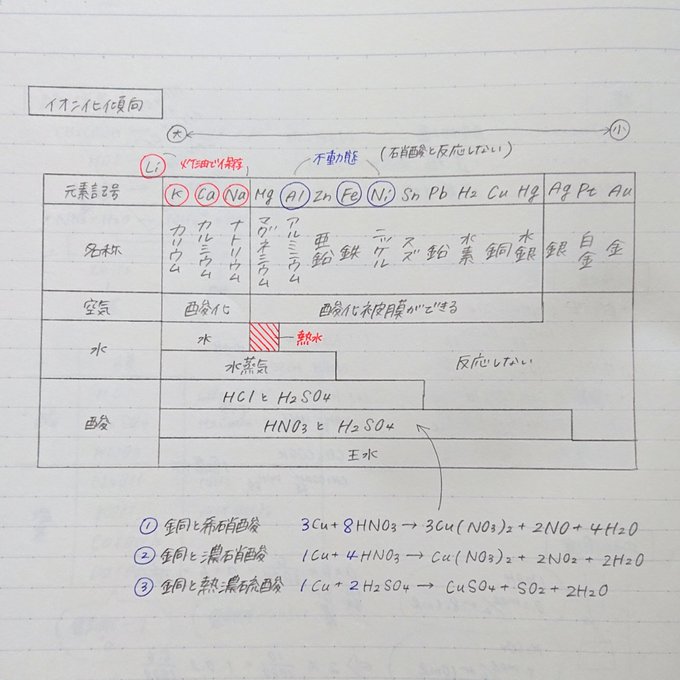 イオン化傾向
大 小
Li 灯油で保存 不動態 (硝酸と反応しない)
元素記号 K Ca Na Mg Al Zn Fe Ni Sn Pb H2 Cu Hg Ag Pt Au
名称 カリウム カルミウム ナトリウム マグネミウム アルミニウム 亜鉛 鉄 ニッケル スズ 鉛 水素 銅 水銀 銀 白金 金
空気 酸化 酸化被皮膜ができる
水 水 熱水
水蒸気 反応しない
HClとH2SO4
酸 HNO3とH2SO4
王水
① 銅と希硝酸 3Cu+8HNO3→3Cu(NO3)2+2NO+4H2O
② 銅と濃硝酸 1Cu+4HNO3→Cu(NO3)2+2NO2+2H2O
③ 銅と熱濃硫酸 1Cu+2H2SO4→CuSO4+SO2+2H2O